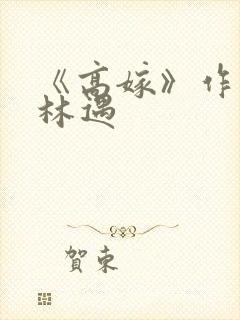 《高嫁》作
林遇
賀東